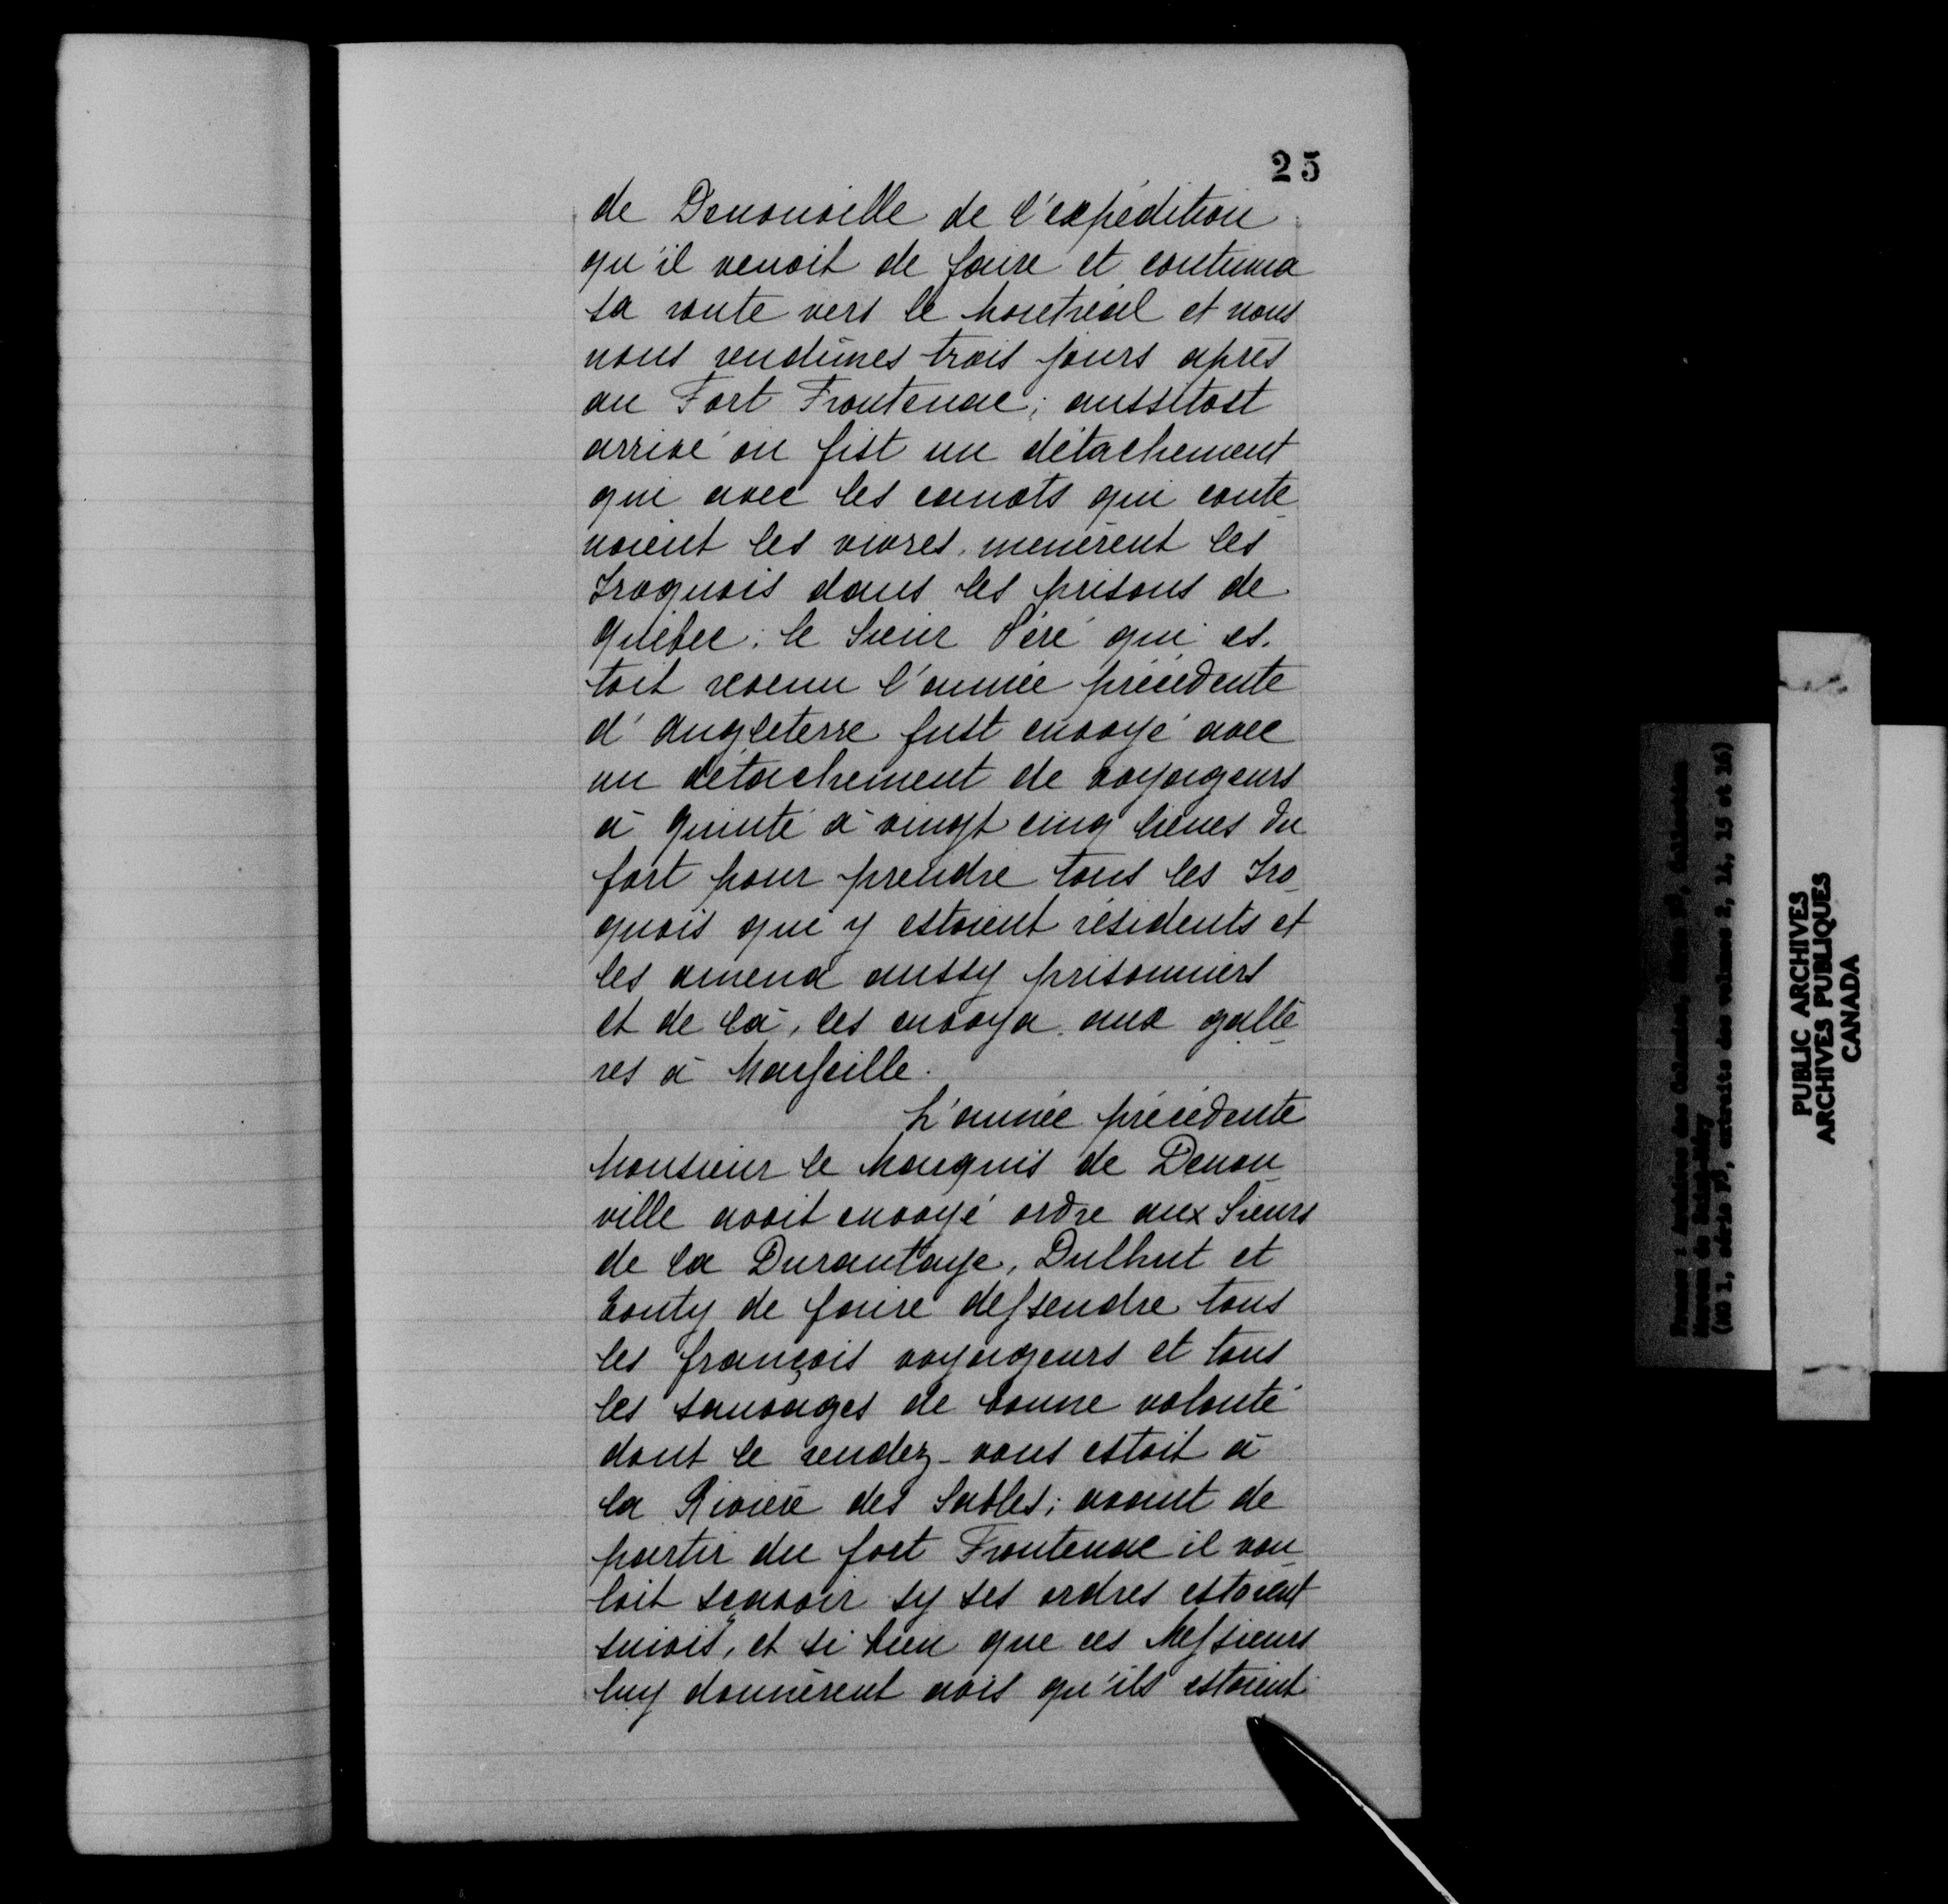 25
de Denonville de l'expédition
qu'il venoit de faire et continua
sa route vers le Montréal et nous
nous rendîmes trois jours après
au Fort Frontenac; aussitost
arrivé on fist un détachement
qui avec les canots qui conte-
noient les vivres, menèrent les
Iroquois dans les prisons de
Québec; le Sieur Péré qui es-
toit revenu l'année précédente
d'Angleterre fust envoyé avec
un détachement de voyageurs
à Quinté à vingt cinq lieues du
fort pour prendre tous les Iro-
quois qui y estoient résidents et
les amena aussy prisonniers
et de là, les envoya aux gallè-
res à Marseille.
L'année précédente
Monsieur le Marquis de Denon-
ville avoit envoyé ordre aux Sieurs
de la Durantaye, Dulhut et
Tonty de faire dessendre tous
les françois voyageurs et tous
les sauvages de bonne volonté
dont le rendez-vous estoit à
la Rivière des Sables; avant de
partir du fort Frontenac il vou-
loit sçavoir sy ses ordres estoient
suivis, et si bien que ces Messieurs
luy donnèrent avis qu'ils estoient
PUBLIC ARCHIVES
ARCHIVES PUBLIQUES
CANADA
(MG 1, série F3, extraits des volumes 2, 14, 15 et 16)